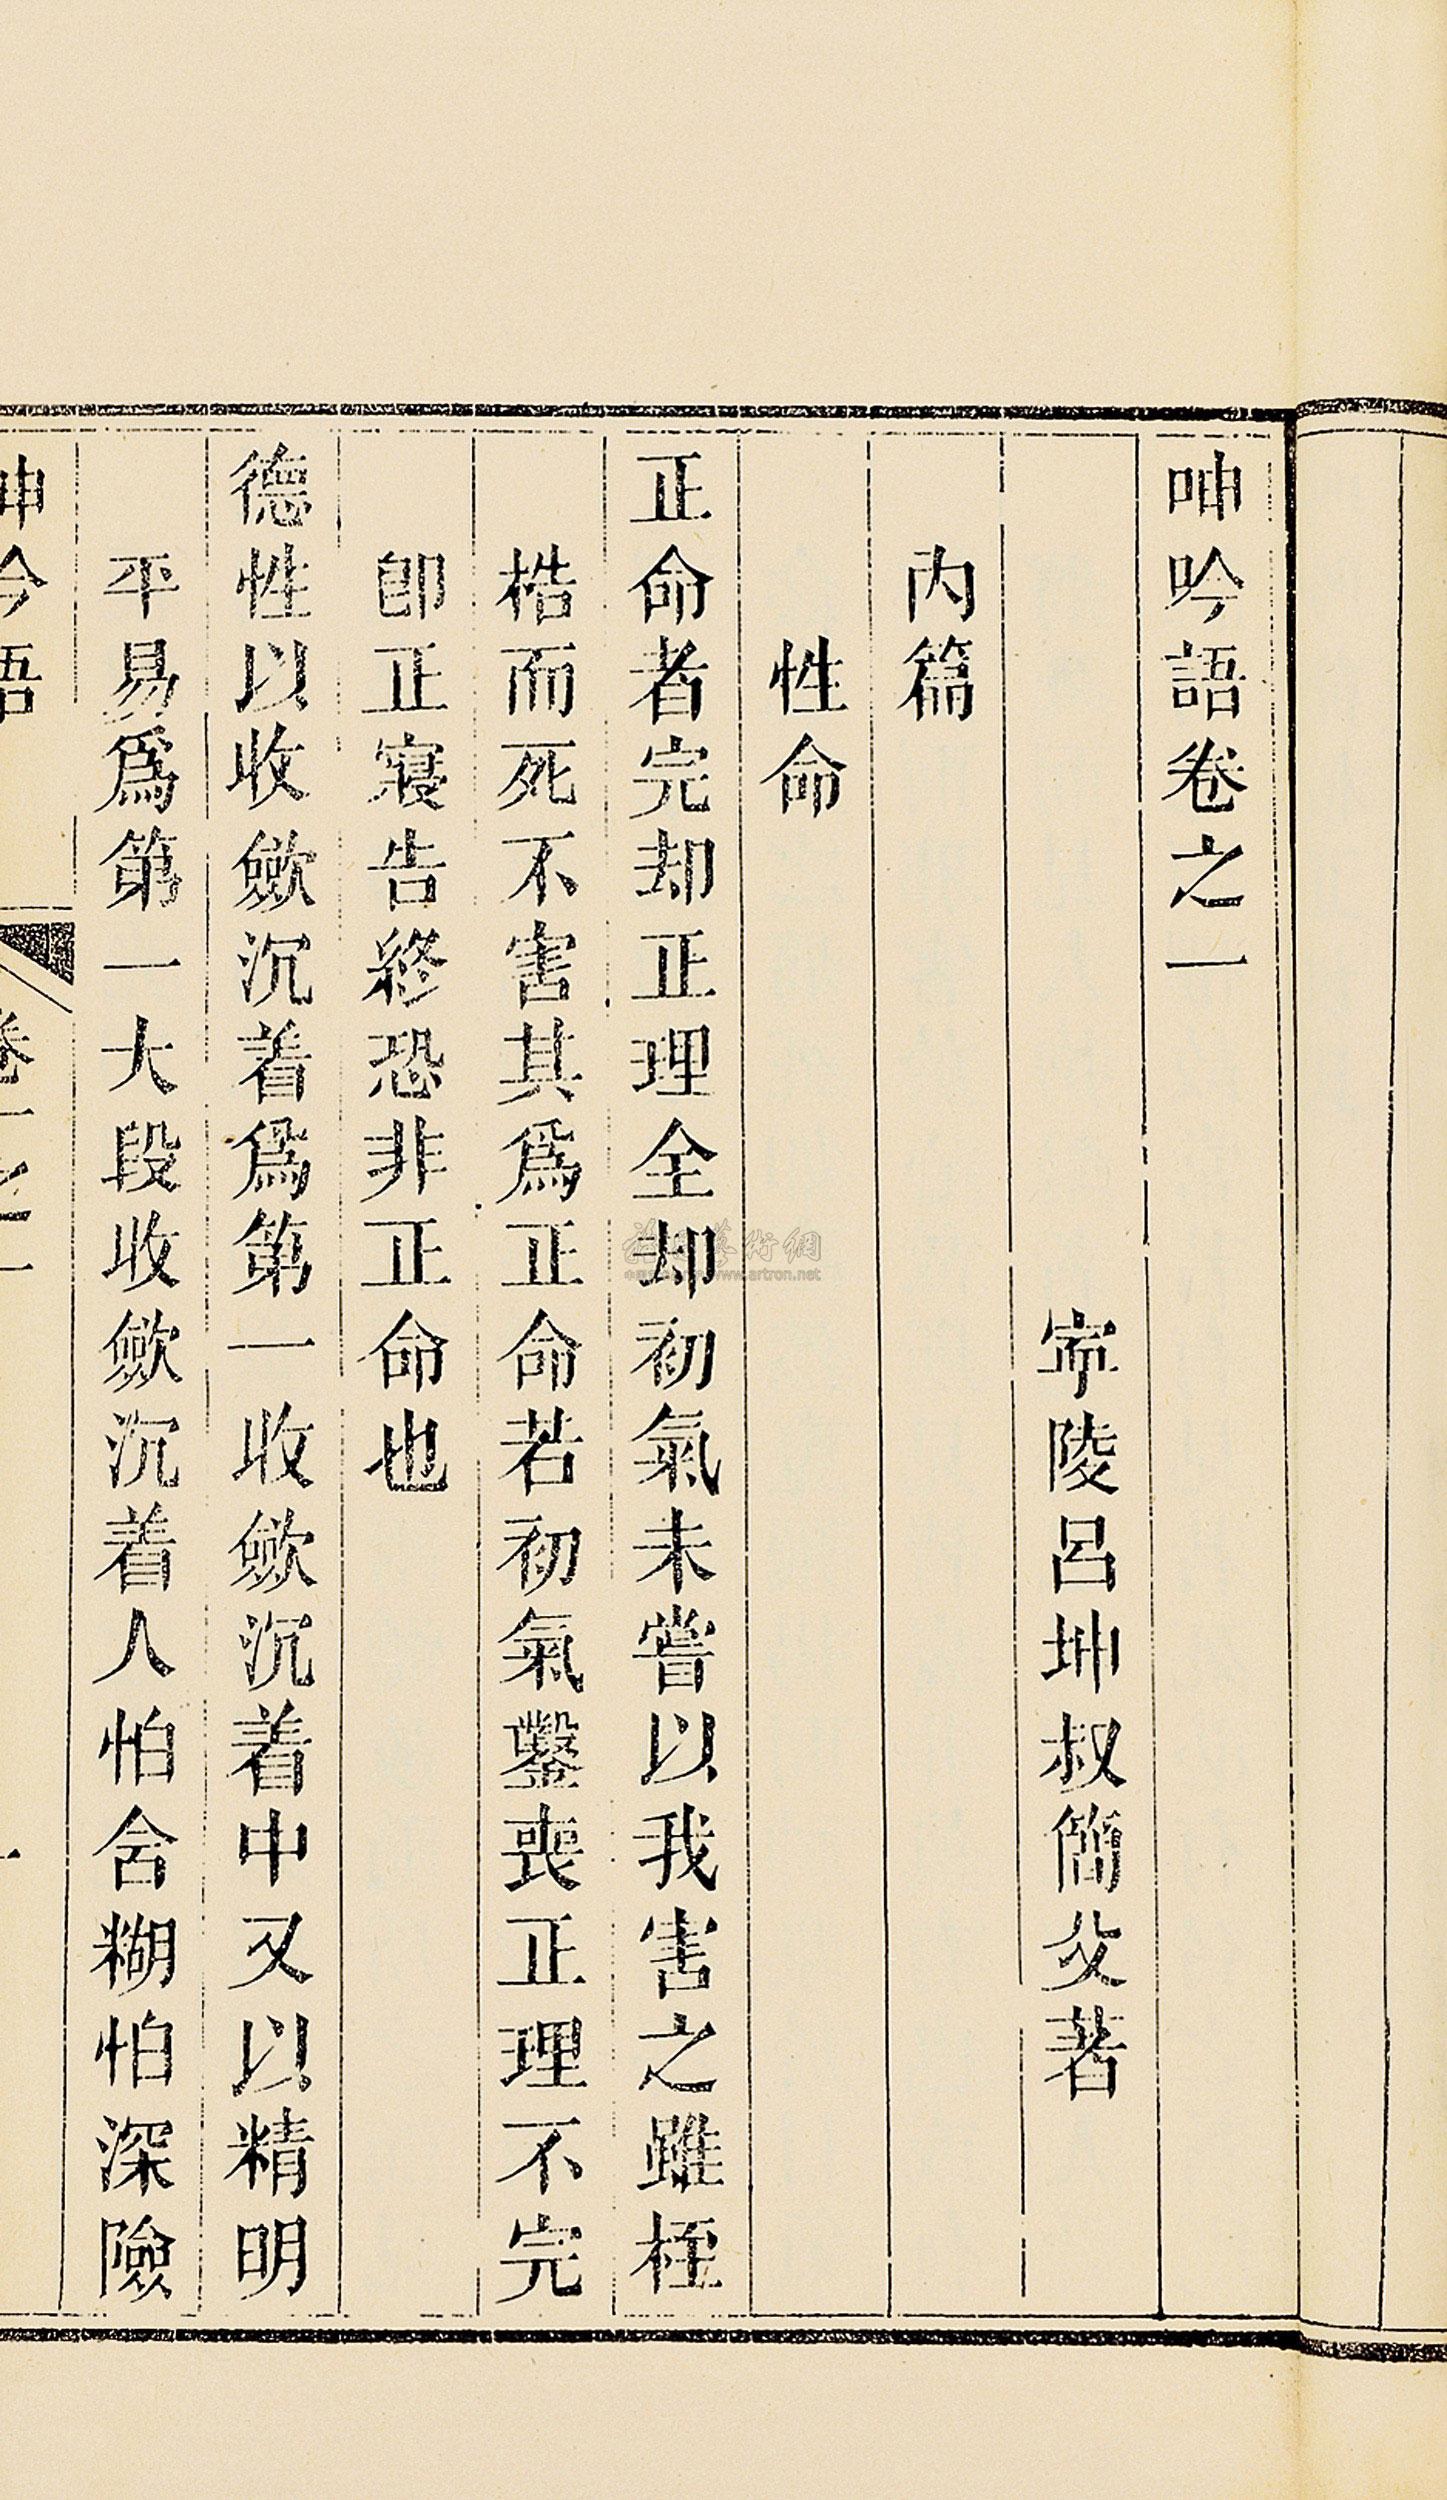 呻吟語卷之一
寕陵呂坤叔簡父著
內篇
性命
正命者完却正理全却初氣未嘗以我害之雖桎
梏而死不害其爲正命若初氣鑿喪正理不完
卽正寢告終恐非正命也
德性以收斂沉着爲第一收斂沉着中又以精明
平易爲第一大段收斂沉着人怕含糊怕深險
呻吟語
卷之一
一
藝術網
www.artron.net